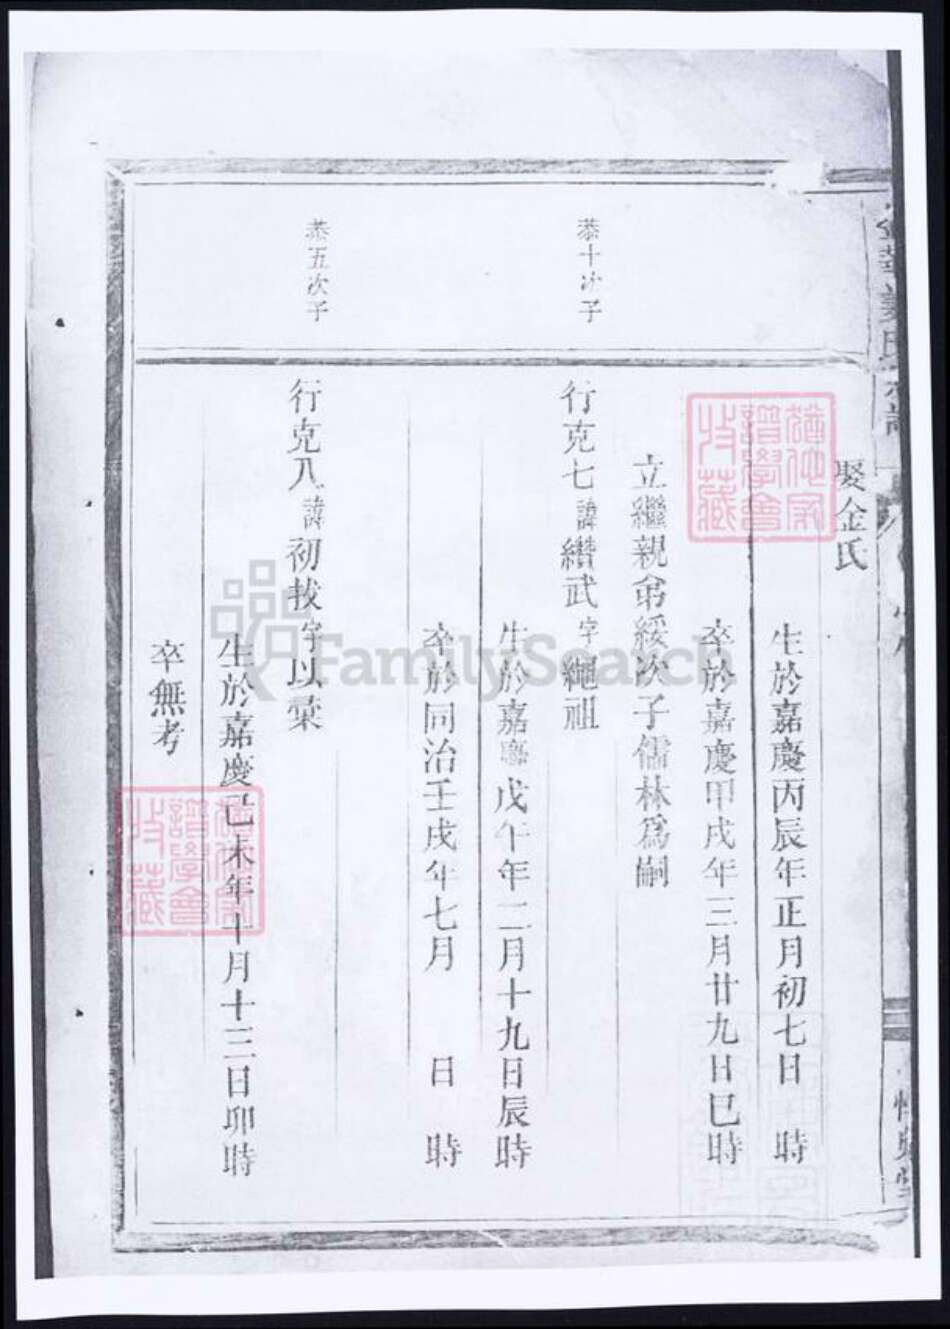 娶金氏
生於嘉慶丙辰年正月初七日 時
卒於嘉慶甲戌年三月廿九日巳時
立繼親弟綏次子儒林爲嗣
恭十次子
行克七諱纘武字繩祖
生於嘉慶戊午年二月十九日辰時
卒於同治壬戌年七月 日 時
恭五次子
行克八諱初拔字以彙
生於嘉慶己未年十月十三日卯時
卒無考
FamilySearch